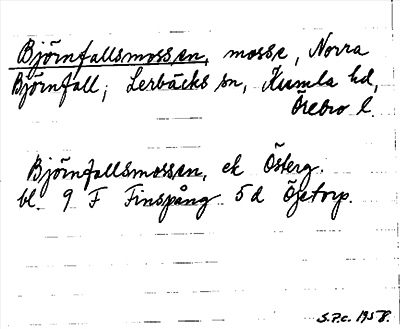 Björnfallsmossen, mosse, Norra
Björnfall, Lerbäcks sn, Kumla hd,
Örebro l.
Björnfallsmossen, ek Österg.
bl. 9 F Finspång 5d Ögetorp.
S.P.C. 1958.